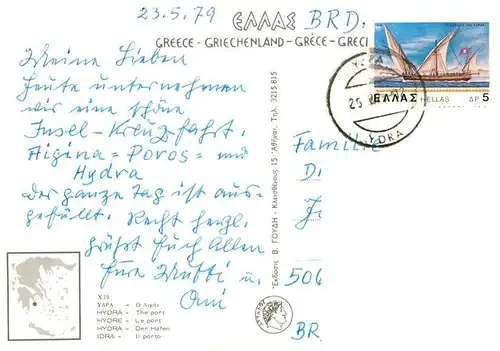 23.5.79
ΕΛΛΑΣ BRD.
GREECE - GRIECHENLAND - GRÈCE - GRECI
Meine Lieben
Heute unternehmen
wir eine schöne
Insel-Kreuzfahrt.
Aigina = Poros = und
Hydra
Der ganze Tag ist aus-
gefüllt. Recht herzl.
grüßt Euch Allen
Eure Mutti u.
Omi
Χ19
ΥΔΡΑ – Ο Λιμήν
HYDRA – The port
HYDRE – Le port
HYDRA – Der Hafen
IDRA – Il porto
Ἐκδόσεις Β. ΓΟΥΔΗ - Κλεισθένους 15 Ἀθῆναι Τηλ. 3215 815
ΕΛΛΑΣ HELLAS ΔΡ 5
25
YDRA
Familie
D.
506
BR